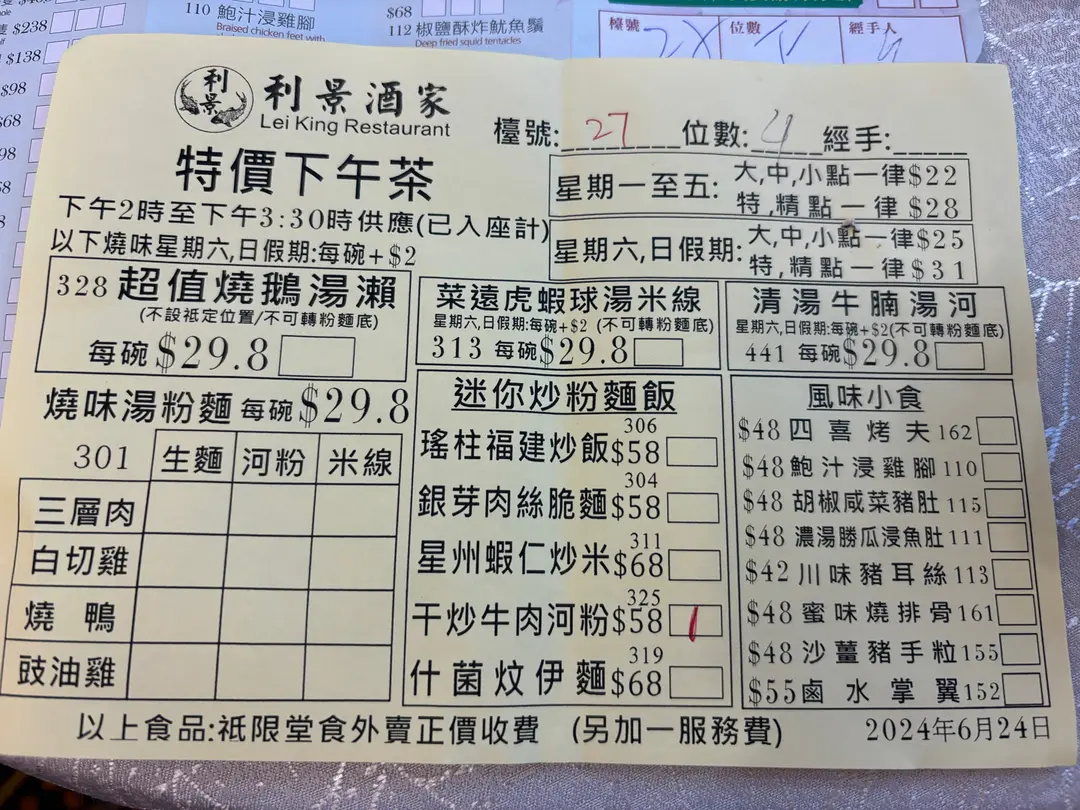 $238
$138
$98
$68
110 鮑汁浸雞腳
Braised chicken feet with
$68
112 椒鹽酥炸魷魚鬚
Deep fried squid tentacles
檯號
位數
經手人
利景
利景酒家
Lei King Restaurant
檯號: 27 位數: 4 經手:
特價下午茶
下午2時至下午3:30時供應(已入座計)
以下燒味星期六,日假期:每碗+$2
星期一至五: 大,中,小點一律$22
特,精點一律 $28
星期六,日假期: 大,中,小點一律$25
特,精點一律$31
328 超值燒鵝湯瀨
(不設祗定位置/不可轉粉麵底)
每碗 $29.8
菜遠虎蝦球湯米線
星期六,日假期:每碗+$2 (不可轉粉麵底)
313 每碗$29.8
清湯牛腩湯河
星期六,日假期:每碗+$2(不可轉粉麵底)
441 每碗$29.8
燒味湯粉麵 每碗 $29.8
301 生麵 河粉 米線
三層肉
白切雞
燒鴨
豉油雞
迷你炒粉麵飯
306
瑤柱福建炒飯$58
304
銀芽肉絲脆麵$58
311
星州蝦仁炒米$68
325
干炒牛肉河粉$58 1
319
什菌炆伊麵$68
風味小食
$48 四喜烤夫 162
$48 鮑汁浸雞腳 110
$48 胡椒咸菜豬肚 115
$48 濃湯勝瓜浸魚肚 111
$42 川味豬耳絲 113
$48 蜜味燒排骨 161
$48 沙薑豬手粒 155
$55 鹵水掌翼 152
以上食品:祗限堂食外賣正價收費 (另加一服務費)
2024年6月24日